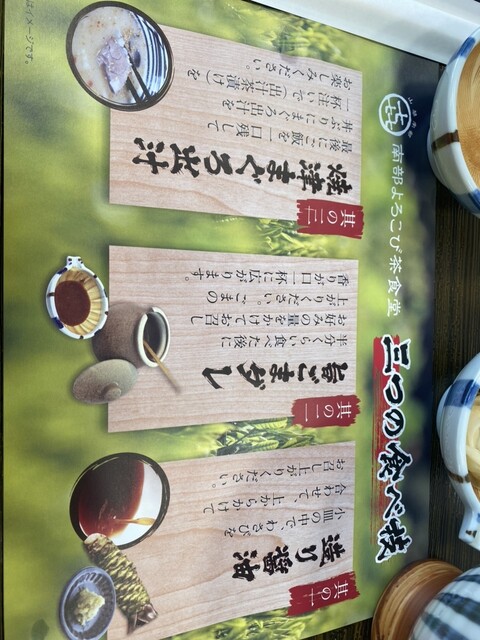 南部よろこび茶食堂
三つの食べ技
其の一
造り醤油
小皿の中で、わさびを
合わせて、上からかけて
お召し上がりください。
其の二
旨ごまダレ
半分くらい食べた後に
お好みの量をかけてお召し
上がりください。ごまの
香りが口一杯に広がります。
其の三
焼津まぐろ出汁
最後にご飯を一口残して
丼ぶりにまぐろ出汁を
一杯注いで(出汁茶漬け)を
お楽しみください。
はイメージです。